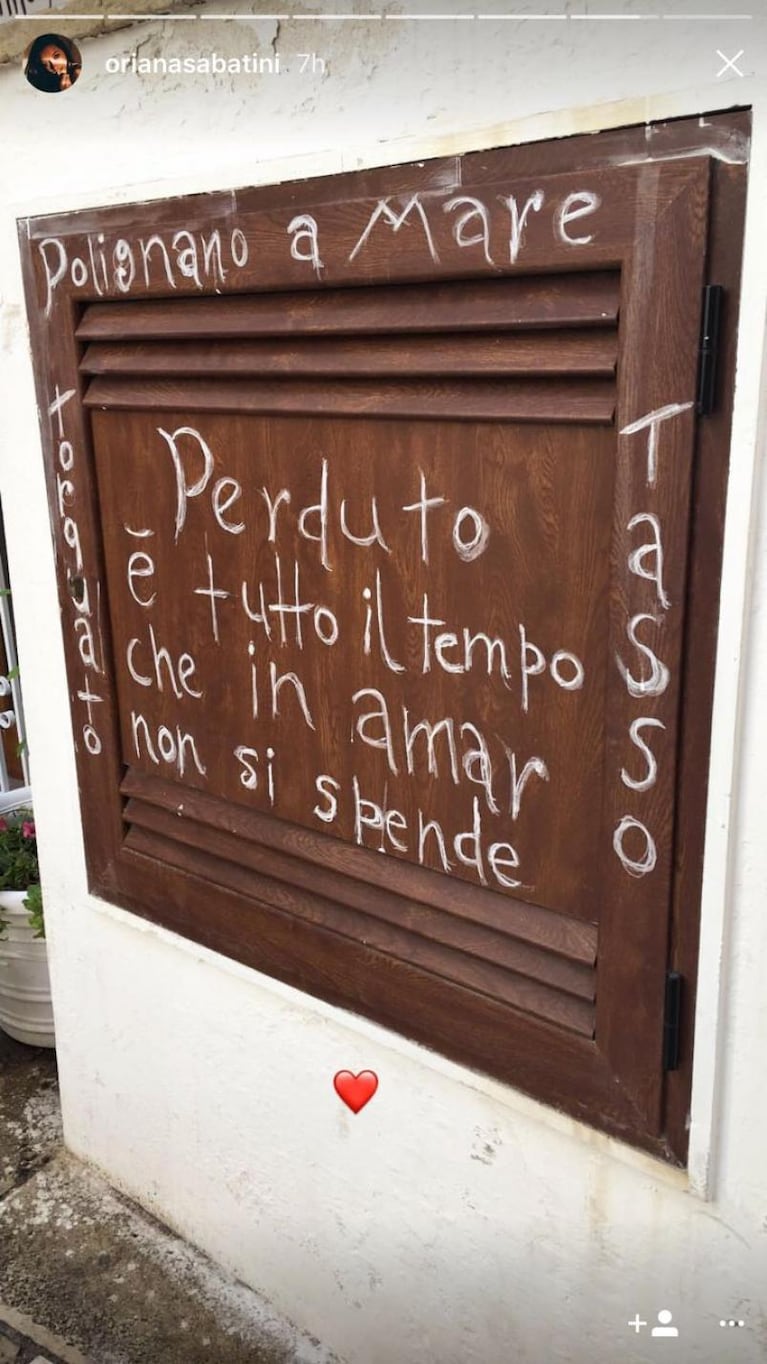 orianasabatini 7h
Polignano a Mare
Torquato
Tasso
Perduto
è tutto il tempo
che in amar
non si spende